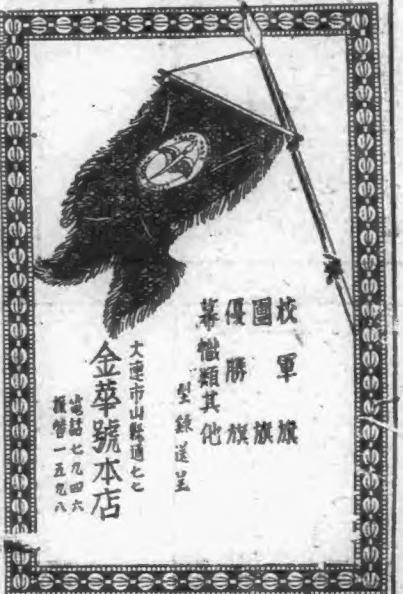 校軍旗
團旗
優勝旗
幕幟類其他
型錄送呈
大連市山縣通七七
金華號本店
電話七九四六
振替一五九八